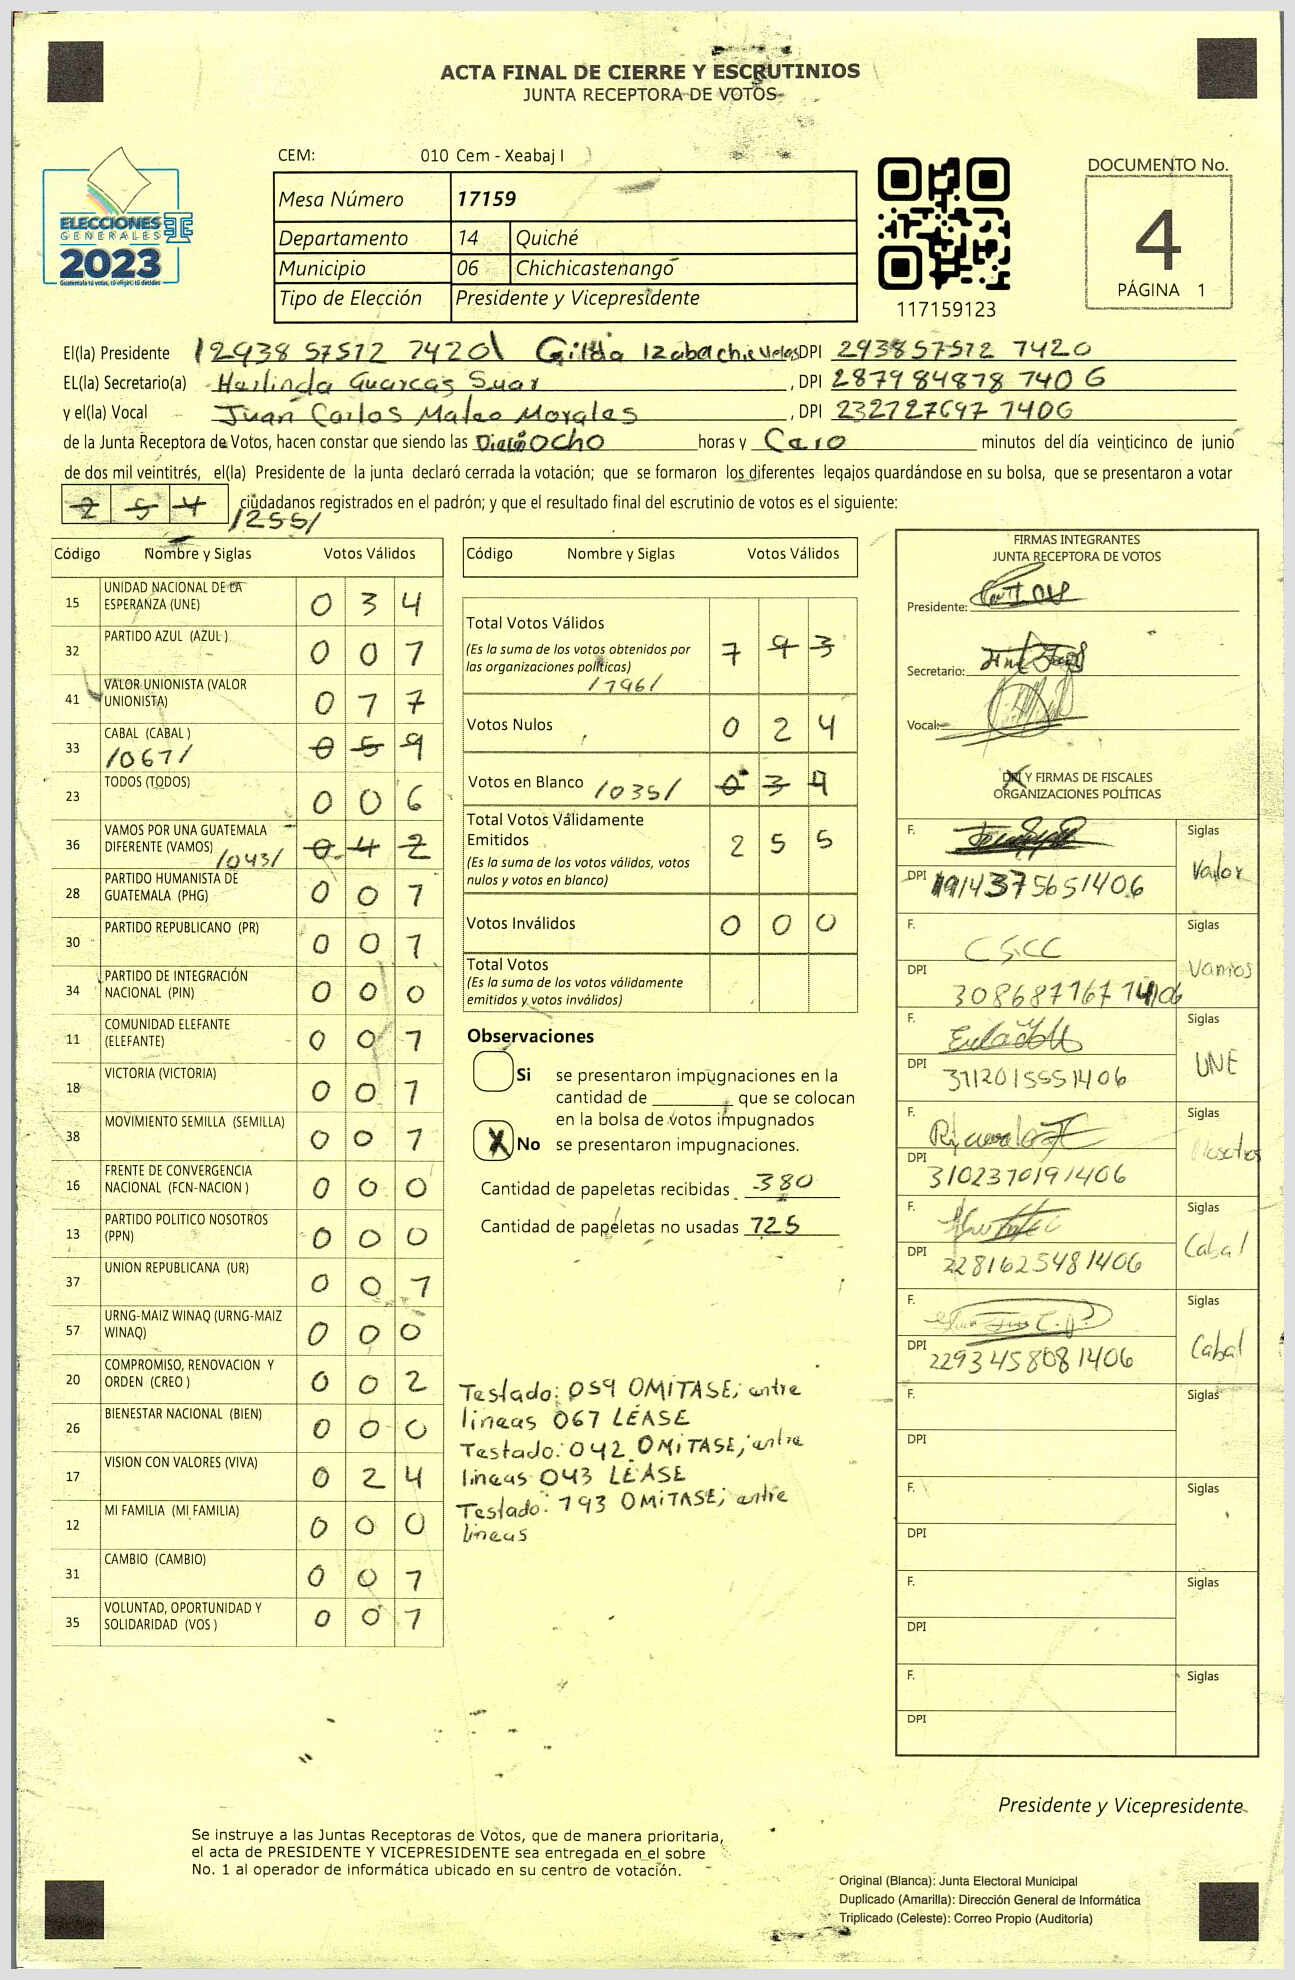 ACTA FINAL DE CIERRE Y ESCRUTINIOS
JUNTA RECEPTORA DE VOTOS
CEM: 010 Cem - Xeabaj I
ELECCIONES
GENERALES
2023
Guatemala tú votas, tú eliges, tú decides
Mesa Número 17159
Departamento 14 Quiché
Municipio 06 Chichicastenango
Tipo de Elección Presidente y Vicepresidente
117159123
DOCUMENTO No.
4
PÁGINA 1
El(la) Presidente /2938 57512 7420\ Gilda DPI 293857512 7420
EL(la) Secretario(a) Herlinda Guarcas Suar , DPI 287984878 7406
y el(la) Vocal Juan Carlos Mateo Morales , DPI 232727697 7406
de la Junta Receptora de Votos, hacen constar que siendo las Dieciocho horas y Cero minutos del día veinticinco de junio
de dos mil veintitrés, el(la) Presidente de la junta declaró cerrada la votación; que se formaron los diferentes legajos guardándose en su bolsa, que se presentaron a votar
2 5 4 ciudadanos registrados en el padrón; y que el resultado final del escrutinio de votos es el siguiente:
/255/
Código Nombre y Siglas Votos Válidos
15 UNIDAD NACIONAL DE LA ESPERANZA (UNE) 0 3 4
32 PARTIDO AZUL (AZUL ) 0 0 7
41 VALOR UNIONISTA (VALOR UNIONISTA) 0 7 7
33 CABAL (CABAL ) /067/ 0 5 9
23 TODOS (TODOS) 0 0 6
36 VAMOS POR UNA GUATEMALA DIFERENTE (VAMOS) /043/ 0 4 2
28 PARTIDO HUMANISTA DE GUATEMALA (PHG) 0 0 7
30 PARTIDO REPUBLICANO (PR) 0 0 7
34 PARTIDO DE INTEGRACIÓN NACIONAL (PIN) 0 0 0
11 COMUNIDAD ELEFANTE (ELEFANTE) 0 0 7
18 VICTORIA (VICTORIA) 0 0 7
38 MOVIMIENTO SEMILLA (SEMILLA) 0 0 7
16 FRENTE DE CONVERGENCIA NACIONAL (FCN-NACION ) 0 0 0
13 PARTIDO POLITICO NOSOTROS (PPN) 0 0 0
37 UNION REPUBLICANA (UR) 0 0 7
57 URNG-MAIZ WINAQ (URNG-MAIZ WINAQ) 0 0 0
20 COMPROMISO, RENOVACION Y ORDEN (CREO ) 0 0 2
26 BIENESTAR NACIONAL (BIEN) 0 0 0
17 VISION CON VALORES (VIVA) 0 2 4
12 MI FAMILIA (MI FAMILIA) 0 0 0
31 CAMBIO (CAMBIO) 0 0 7
35 VOLUNTAD, OPORTUNIDAD Y SOLIDARIDAD (VOS ) 0 0 7
Código Nombre y Siglas Votos Válidos
Total Votos Válidos 7 9 3
(Es la suma de los votos obtenidos por
las organizaciones políticas)
/796/
Votos Nulos 0 2 4
Votos en Blanco /035/ 0 3 9
Total Votos Válidamente
Emitidos 2 5 5
(Es la suma de los votos válidos, votos
nulos y votos en blanco)
Votos Inválidos 0 0 0
Total Votos
(Es la suma de los votos válidamente
emitidos y votos inválidos)
Observaciones
Si se presentaron impugnaciones en la
cantidad de ________ que se colocan
en la bolsa de votos impugnados
X No se presentaron impugnaciones.
Cantidad de papeletas recibidas 380
Cantidad de papeletas no usadas 725
Testado: 059 OMITASE; entre
líneas 067 LÉASE
Testado: 042 OMITASE; entre
líneas 043 LÉASE
Testado: 793 OMITASE; entre
líneas
FIRMAS INTEGRANTES
JUNTA RECEPTORA DE VOTOS
Presidente:
Secretario:
Vocal:
DPI Y FIRMAS DE FISCALES
ORGANIZACIONES POLÍTICAS
F. Siglas
DPI 1914375651406 Valor
F. CSCC Siglas
DPI 308687767 1406 Vamos
F. Siglas
DPI 3712015551406 UNE
F. Siglas
DPI 3102370191406 Nosotros
F. Siglas
DPI 2281625481406 Cabal
F. Siglas
DPI 2293458081406 Cabal
F. Siglas
DPI
F. Siglas
DPI
F. Siglas
DPI
F. Siglas
DPI
Presidente y Vicepresidente
Se instruye a las Juntas Receptoras de Votos, que de manera prioritaria,
el acta de PRESIDENTE Y VICEPRESIDENTE sea entregada en el sobre
No. 1 al operador de informática ubicado en su centro de votación.
Original (Blanca): Junta Electoral Municipal
Duplicado (Amarilla): Dirección General de Informática
Triplicado (Celeste): Correo Propio (Auditoría)